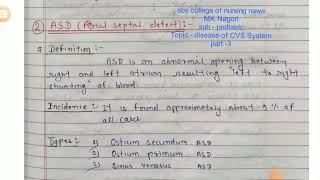 sbs college of nursing nawa
MK Nagori
sub - pediatric
Topic - disease of CVS System
part -3
② ASD (Atrial septal defect):-
# Definition :-
ASD is an abnormal opening between
right and left atrium resulting "left to right
shunting" of blood.
Incidence :- It is found approximately about 9% of
all cases
Types :- 1) Ostium secundum ASD
2) Ostium primum ASD
3) Sinus venosus ASD